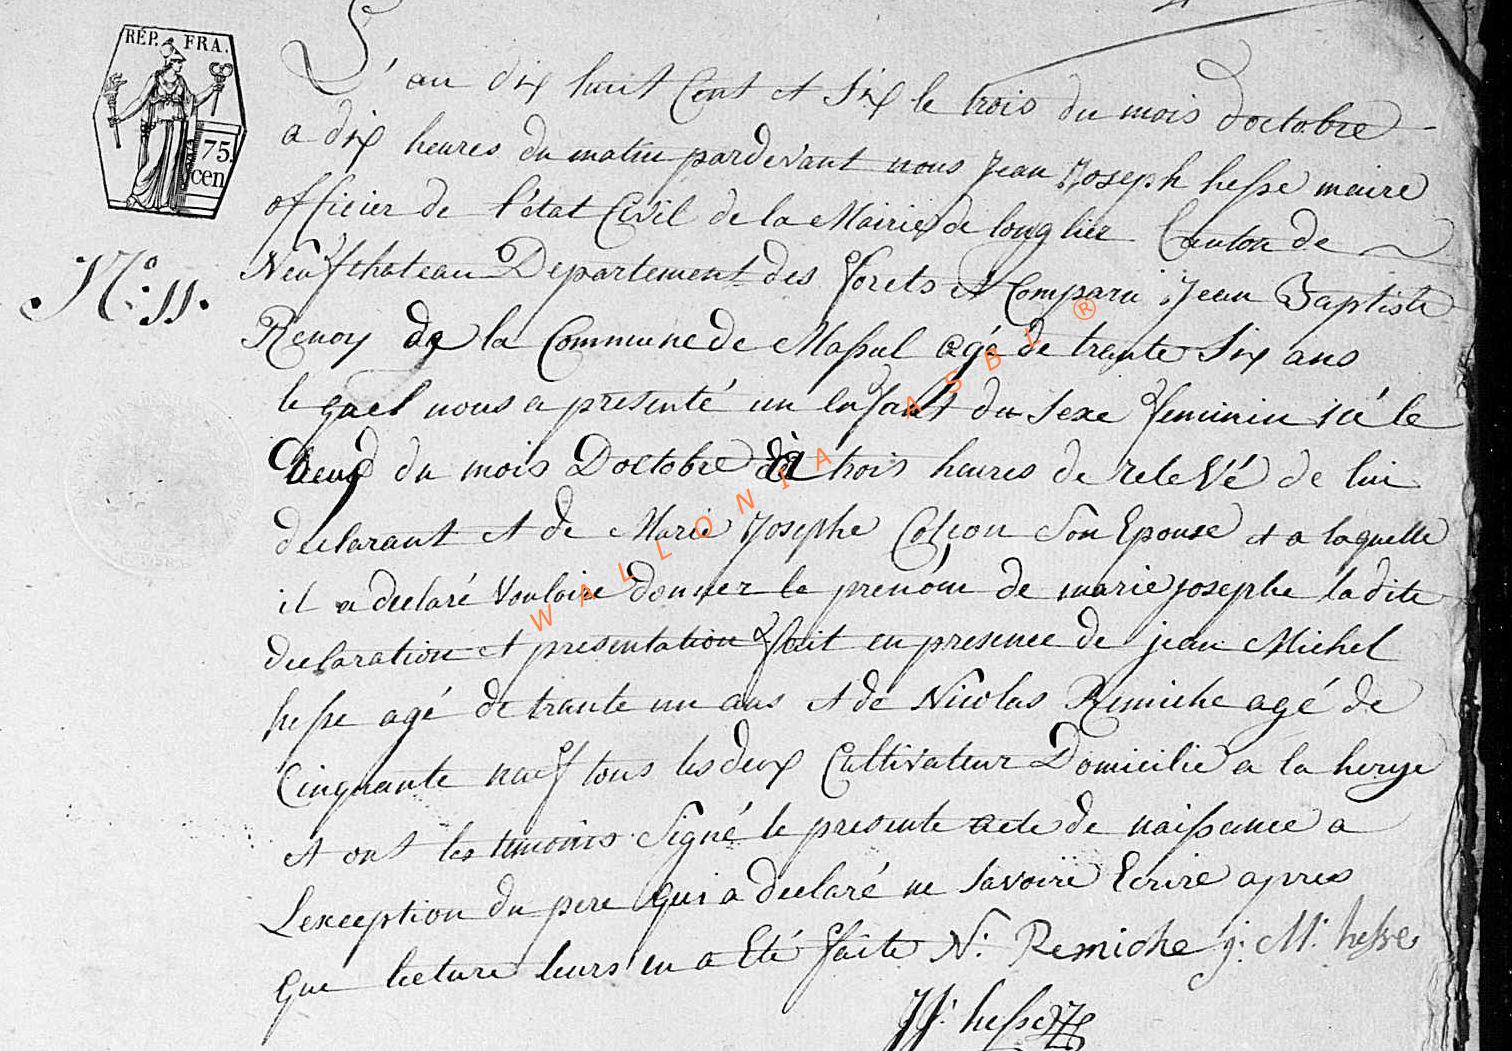 RÉP. FRA.
75.
cen
L'an dix huit Cent et Six le trois du mois doctobre
a dix heures du matin pardevant nous Jean Joseph hesse maire
officier de l'état Civil de la Mairie de longlier Canton de
Neufchateau Departement des forets et Comparu Jean Baptiste
N.° 11.
Renoy de la Commune de Massul agé de trante Six ans
le quel nous a presenté un Enfant du Sexe feminin né le
deux du mois Doctobre à trois heures de relevé de lui
declarant et de Marie Josephe Colson Son Epouse et a laquelle
il a declaré Vouloire donner le prenom de marie josephe la dite
declaration et presentation fait en presence de jean Michel
hesse agé de trante un ans et de Nicolas Remiche agé de
Cinquante naef tous les deux Cultivateur Domicilié a la herge
et ont les temoins Signé le presente acte de naissance a
Lexception du pere qui a declaré ne Savoire Ecrire apres
que lecture leurs en a Eté faite N. Remiche j. M. hesse
JJ. hesse
WALLONIA ASBL ®